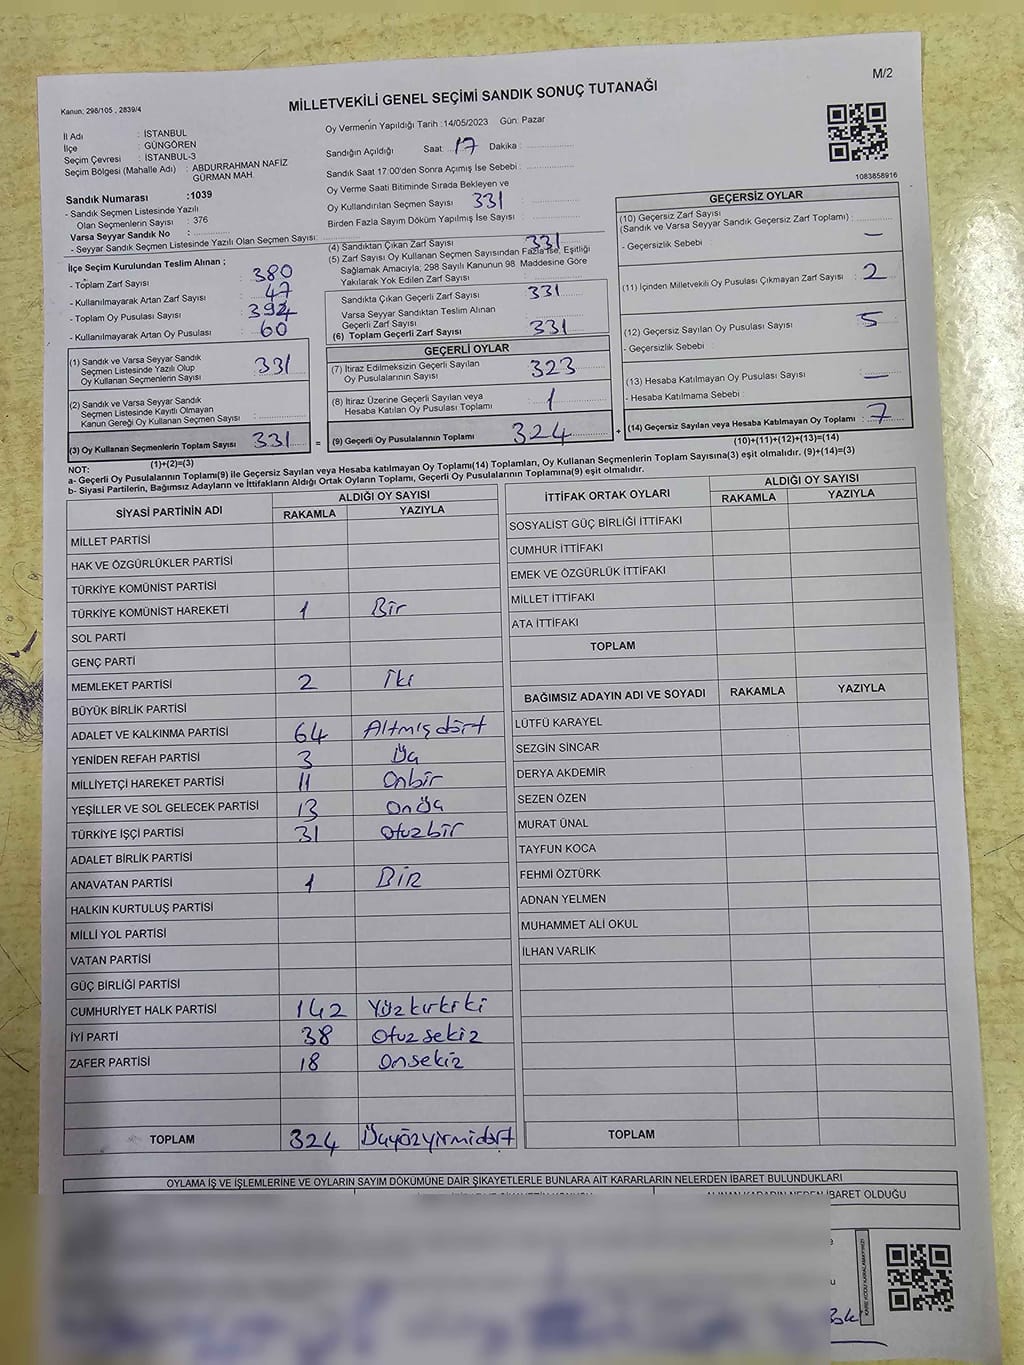 M/2
Kanun; 298/105 , 2839/4
MİLLETVEKİLİ GENEL SEÇİMİ SANDIK SONUÇ TUTANAĞI
İl Adı : İSTANBUL
İlçe : GÜNGÖREN
Seçim Çevresi : İSTANBUL-3
Seçim Bölgesi (Mahalle Adı) : ABDURRAHMAN NAFİZ
GÜRMAN MAH.
Sandık Numarası :1039
- Sandık Seçmen Listesinde Yazılı
Olan Seçmenlerin Sayısı : 376
Varsa Seyyar Sandık No :
- Seyyar Sandık Seçmen Listesinde Yazılı Olan Seçmen Sayısı:
Oy Vermenin Yapıldığı Tarih :14/05/2023 Gün: Pazar
Sandığın Açıldığı Saat: 17 Dakika :
Sandık Saat 17:00'den Sonra Açımış İse Sebebi :
Oy Verme Saati Bitiminde Sırada Bekleyen ve
Oy Kullandırılan Seçmen Sayısı 331
Birden Fazla Sayım Döküm Yapılmış İse Sayısı :
1083858916
İlçe Seçim Kurulundan Teslim Alınan ;
- Toplam Zarf Sayısı : 380
- Kullanılmayarak Artan Zarf Sayısı : 47
- Toplam Oy Pusulası Sayısı : 392
- Kullanılmayarak Artan Oy Pusulası : 60
(1) Sandık ve Varsa Seyyar Sandık
Seçmen Listesinde Yazılı Olup
Oy Kullanan Seçmenlerin Sayısı : 331
(2) Sandık ve Varsa Seyyar Sandık
Seçmen Listesinde Kayıtlı Olmayan
Kanun Gereği Oy Kullanan Seçmen Sayısı :
(3) Oy Kullanan Seçmenlerin Toplam Sayısı 331 =
(1)+(2)=(3)
(4) Sandıktan Çıkan Zarf Sayısı 331
(5) Zarf Sayısı Oy Kullanan Seçmen Sayısından Fazla İse, Eşitliği
Sağlamak Amacıyla; 298 Sayılı Kanunun 98. Maddesine Göre
Yakılarak Yok Edilen Zarf Sayısı
Sandıkta Çıkan Geçerli Zarf Sayısı 331
Varsa Seyyar Sandıktan Teslim Alınan
Geçerli Zarf Sayısı
(6) Toplam Geçerli Zarf Sayısı 331
GEÇERLİ OYLAR
(7) İtiraz Edilmeksizin Geçerli Sayılan
Oy Pusulalarının Sayısı : 323
(8) İtiraz Üzerine Geçerli Sayılan veya
Hesaba Katılan Oy Pusulası Toplamı : 1
(9) Geçerli Oy Pusulalarının Toplamı 324 +
GEÇERSİZ OYLAR
(10) Geçersiz Zarf Sayısı
(Sandık ve Varsa Seyyar Sandık Geçersiz Zarf Toplamı) :
- Geçersizlik Sebebi : —
(11) İçinden Milletvekili Oy Pusulası Çıkmayan Zarf Sayısı : 2
(12) Geçersiz Sayılan Oy Pusulası Sayısı : 5
- Geçersizlik Sebebi :
(13) Hesaba Katılmayan Oy Pusulası Sayısı : —
- Hesaba Katılmama Sebebi :
(14) Geçersiz Sayılan veya Hesaba Katılmayan Oy Toplamı : 7
(10)+(11)+(12)+(13)=(14)
NOT:
a- Geçerli Oy Pusulalarının Toplamı(9) ile Geçersiz Sayılan veya Hesaba katılmayan Oy Toplamı(14) Toplamları, Oy Kullanan Seçmenlerin Toplam Sayısına(3) eşit olmalıdır. (9)+(14)=(3)
b- Siyasi Partilerin, Bağımsız Adayların ve İttifakların Aldığı Ortak Oyların Toplamı, Geçerli Oy Pusulalarının Toplamına(9) eşit olmalıdır.
SİYASİ PARTİNİN ADI ALDIĞI OY SAYISI
RAKAMLA YAZIYLA
MİLLET PARTİSİ
HAK VE ÖZGÜRLÜKLER PARTİSİ
TÜRKİYE KOMÜNİST PARTİSİ
TÜRKİYE KOMÜNİST HAREKETİ 1 Bir
SOL PARTİ
GENÇ PARTİ
MEMLEKET PARTİSİ 2 İki
BÜYÜK BİRLİK PARTİSİ
ADALET VE KALKINMA PARTİSİ 64 Altmışdört
YENİDEN REFAH PARTİSİ 3 Üç
MİLLİYETÇİ HAREKET PARTİSİ 11 Onbir
YEŞİLLER VE SOL GELECEK PARTİSİ 13 Onüç
TÜRKİYE İŞÇİ PARTİSİ 31 Otuzbir
ADALET BİRLİK PARTİSİ
ANAVATAN PARTİSİ 1 BİR
HALKIN KURTULUŞ PARTİSİ
MİLLİ YOL PARTİSİ
VATAN PARTİSİ
GÜÇ BİRLİĞİ PARTİSİ
CUMHURİYET HALK PARTİSİ 142 Yüzkırkiki
İYİ PARTİ 38 Otuzsekiz
ZAFER PARTİSİ 18 Onsekiz
TOPLAM 324 Üçyüzyirmidört
İTTİFAK ORTAK OYLARI ALDIĞI OY SAYISI
RAKAMLA YAZIYLA
SOSYALİST GÜÇ BİRLİĞİ İTTİFAKI
CUMHUR İTTİFAKI
EMEK VE ÖZGÜRLÜK İTTİFAKI
MİLLET İTTİFAKI
ATA İTTİFAKI
TOPLAM
BAĞIMSIZ ADAYIN ADI VE SOYADI RAKAMLA YAZIYLA
LÜTFÜ KARAYEL
SEZGİN SİNCAR
DERYA AKDEMİR
SEZEN ÖZEN
MURAT ÜNAL
TAYFUN KOCA
FEHMİ ÖZTÜRK
ADNAN YELMEN
MUHAMMET ALİ OKUL
İLHAN VARLIK
TOPLAM
OYLAMA İŞ VE İŞLEMLERİNE VE OYLARIN SAYIM DÖKÜMÜNE DAİR ŞİKAYETLERLE BUNLARA AİT KARARLARIN NELERDEN İBARET BULUNDUKLARI
ALINAN KARARIN NEDEN İBARET OLDUĞU
KARE KODU KARALAMAYINIZ!